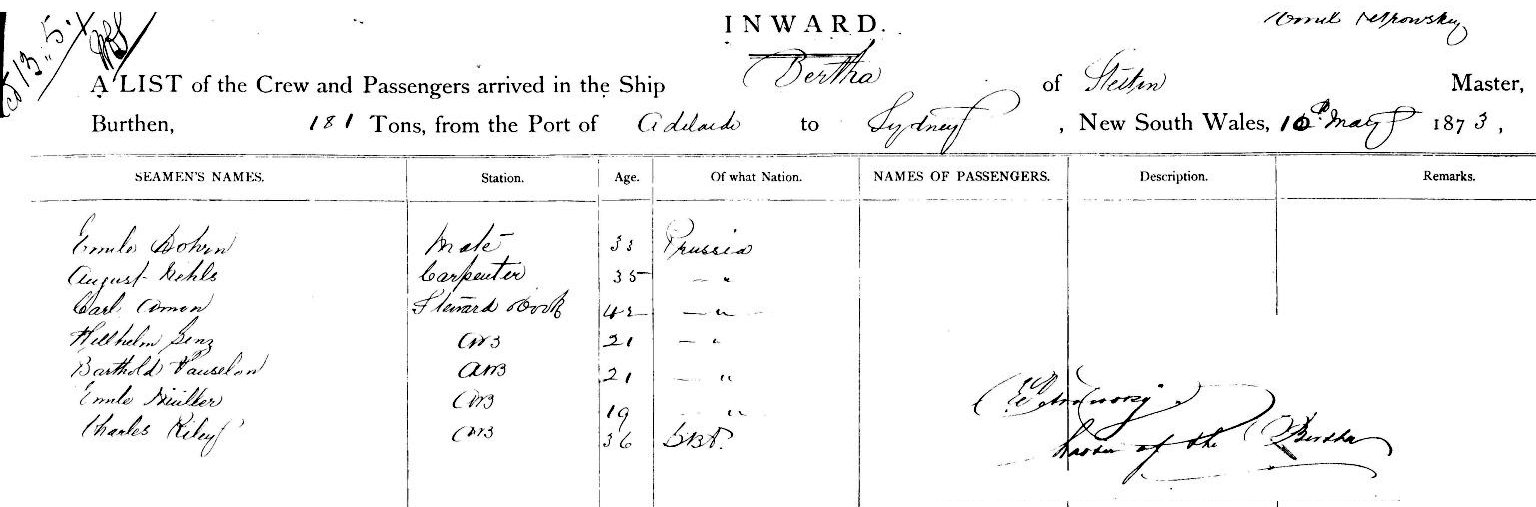 INWARD.
13.5.
A LIST of the Crew and Passengers arrived in the Ship Bertha of Stettin Master,
Burthen, 181 Tons, from the Port of Adelaide to Sydney, New South Wales, 10 May 1873,
SEAMEN'S NAMES. Station. Age. Of what Nation. NAMES OF PASSENGERS. Description. Remarks.
Emile Dohrn Mate 33 Prussia
August Kehls Carpenter 35 — "
Carl Amon Steward & Cook 42 — "
Willhelm Genz AB 21 — "
Barthold Pauselon AB 21 — "
Emile Müller AB 19 "
Charles Riley AB 36 Brt.
of the Bertha